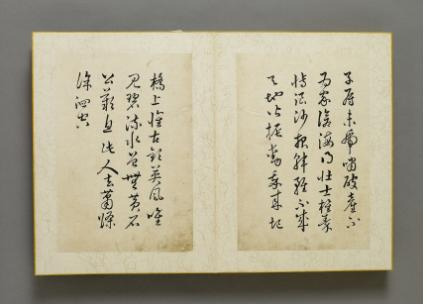 子房未虎嘯破產不
為家滄海得壯士椎秦
博浪沙報韓雖不成
天地皆振動我來圯
橋上懷古欽英風唯
見碧流水曾無黃石
公歎息此人去蕭條
徐泗空